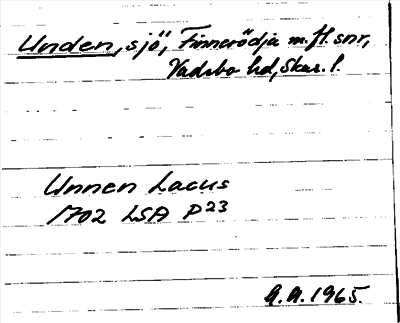 Unden, sjö, Finnerödja m.fl. snr,
Vadsbo hd, Skar. l.
Unnen Lacus
1702 LSA P23
A.A. 1965.